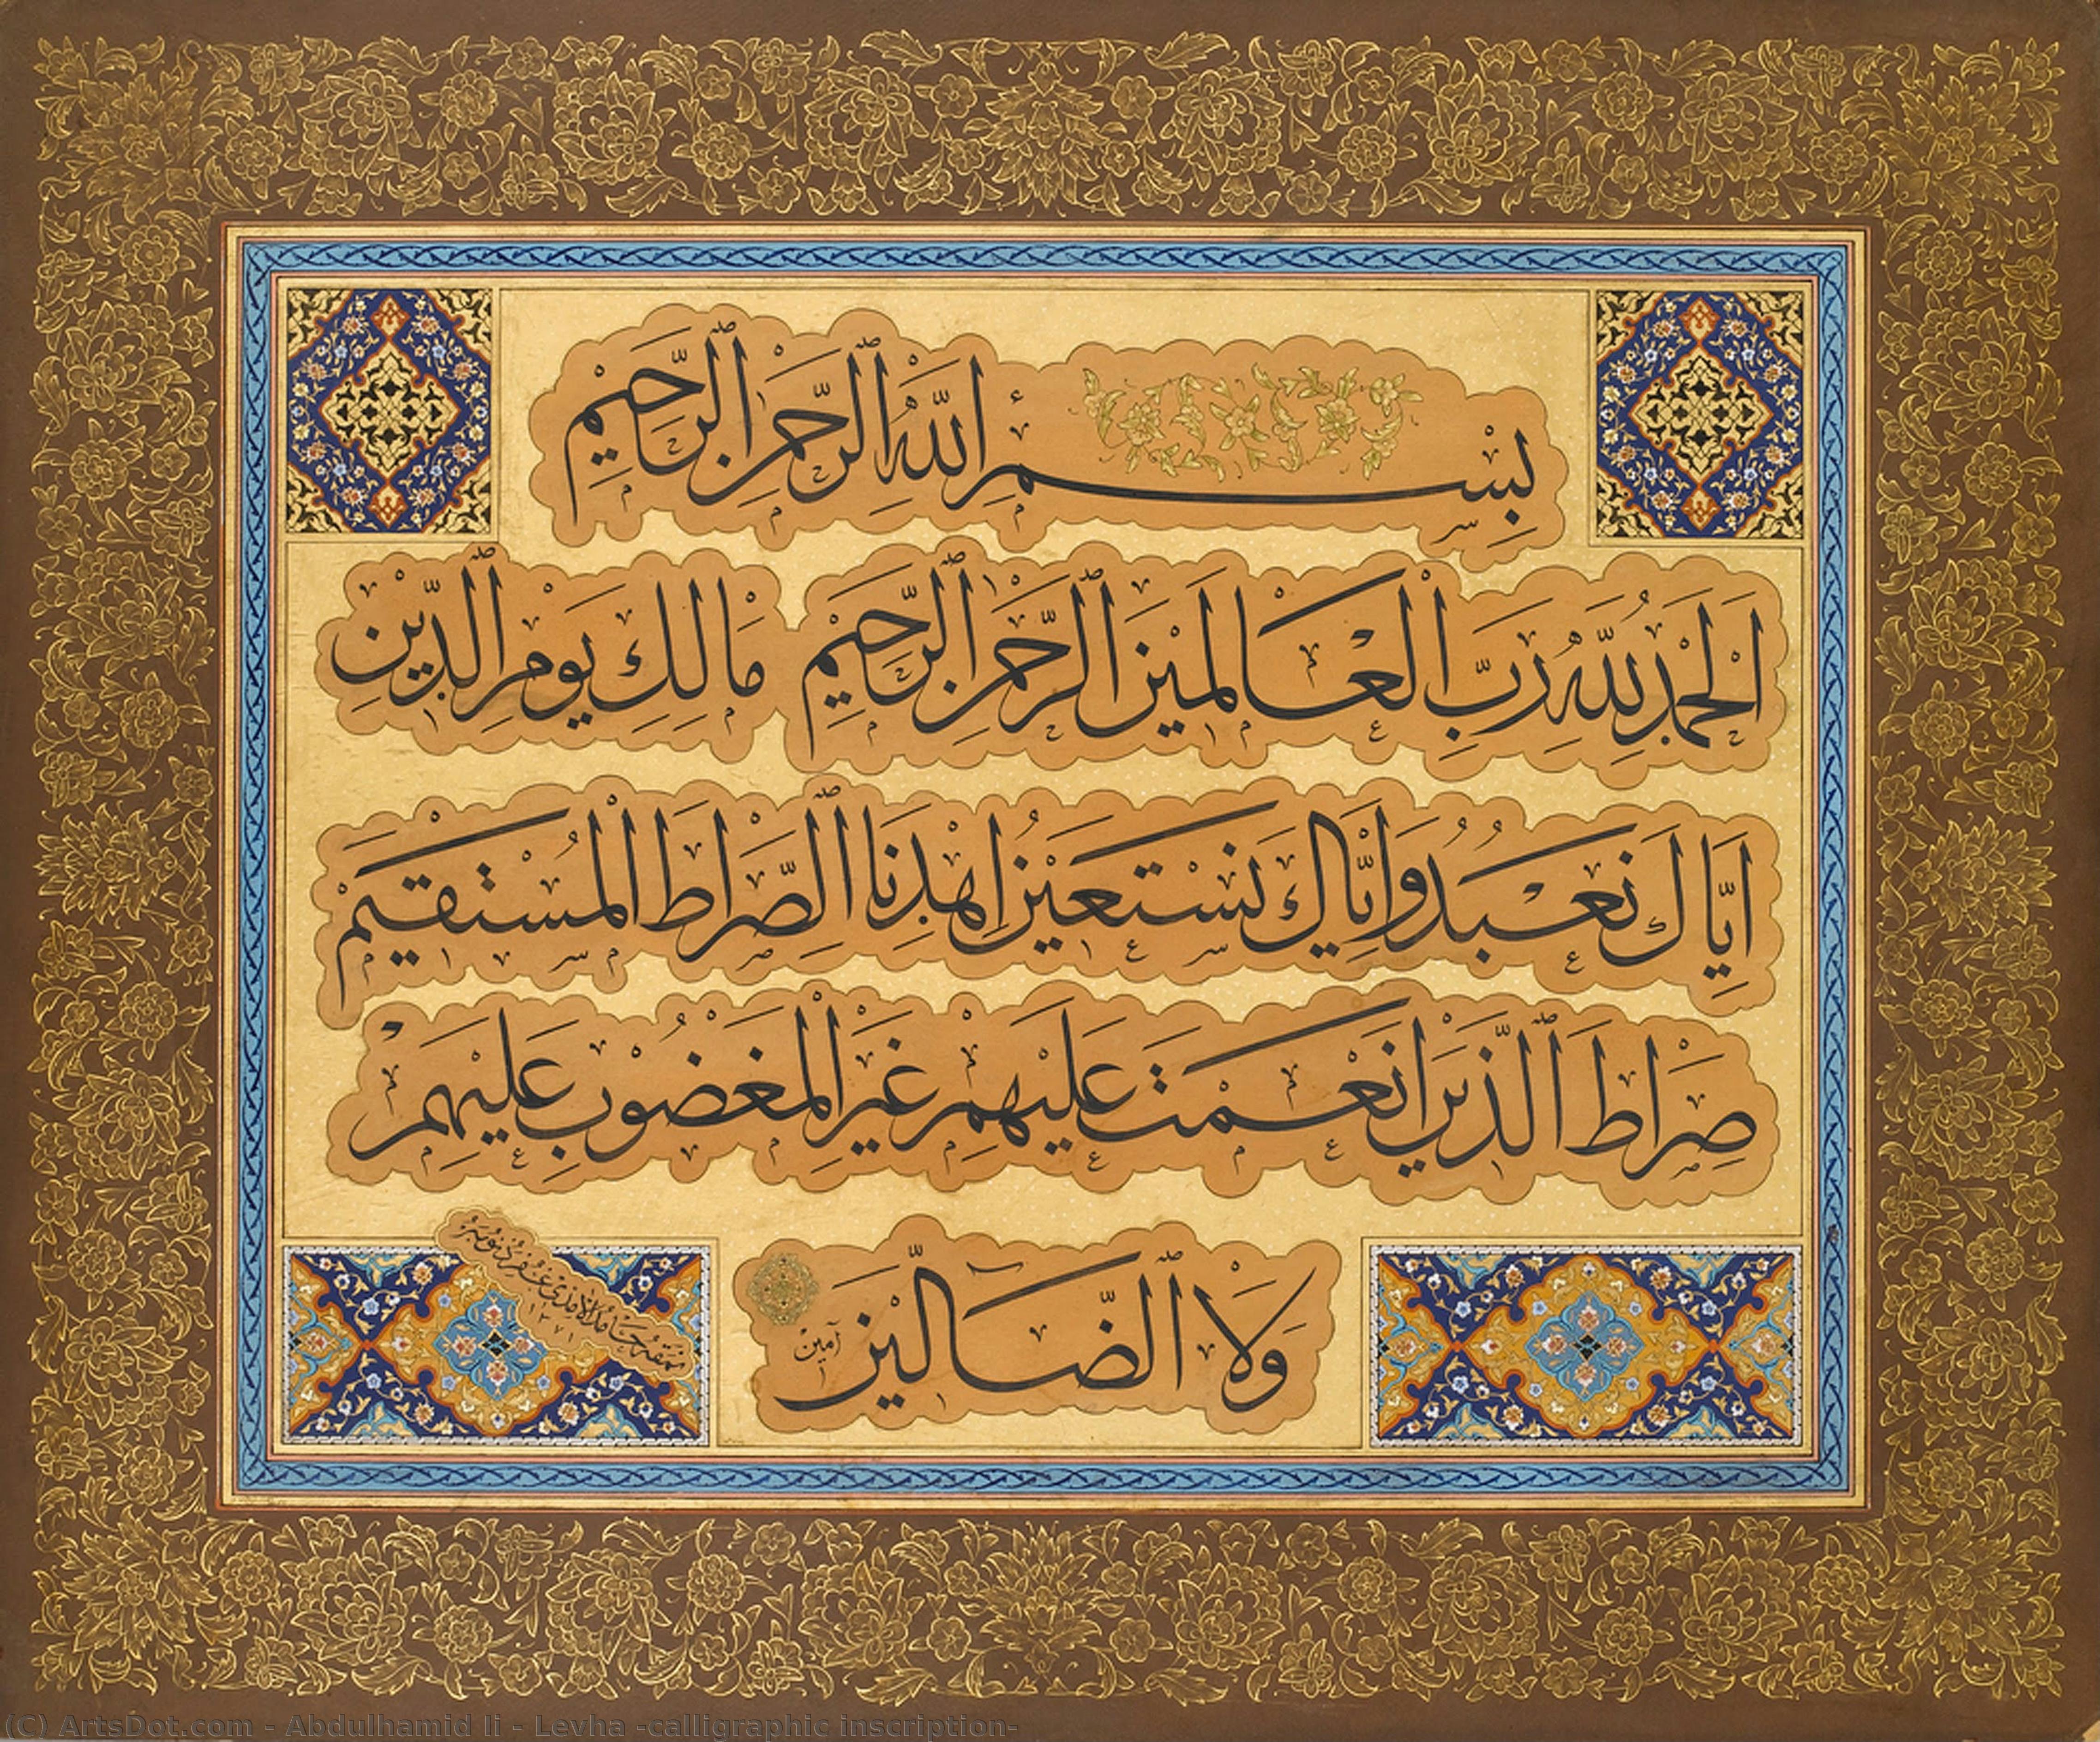 بِسْمِ اللّٰهِ الرَّحْمٰنِ الرَّحِيْمِ
اَلْحَمْدُ لِلّٰهِ رَبِّ الْعَالَمِيْنَ اَلرَّحْمٰنِ الرَّحِيْمِ مَالِكِ يَوْمِ الدِّيْنِ
اِيَّاكَ نَعْبُدُ وَاِيَّاكَ نَسْتَعِيْنُ اِهْدِنَا الصِّرَاطَ الْمُسْتَقِيْمَ
صِرَاطَ الَّذِيْنَ اَنْعَمْتَ عَلَيْهِمْ غَيْرِ الْمَغْضُوْبِ عَلَيْهِمْ
وَلَا الضَّالِّيْنَ
آمين
نمقه حامد الآمدى غفر ذنوبه
١٣٧١
(C) ArtsDot.com - Abdulhamid Ii - Levha -calligraphic inscription-